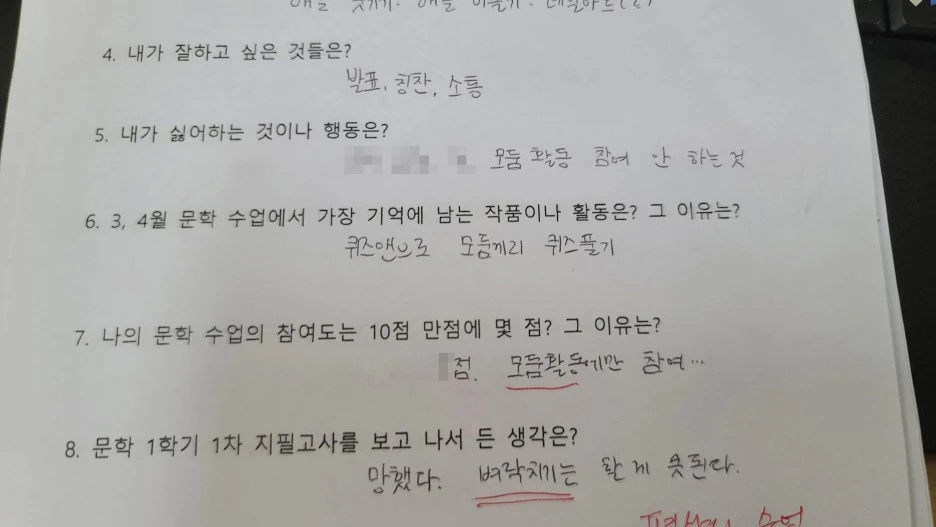 4. 내가 잘하고 싶은 것들은?
발표, 칭찬, 소통
5. 내가 싫어하는 것이나 행동은?
모둠 활동 참여 안 하는 것
6. 3, 4월 문학 수업에서 가장 기억에 남는 작품이나 활동은? 그 이유는?
퀴즈앤으로 모둠끼리 퀴즈풀기
7. 나의 문학 수업의 참여도는 10점 만점에 몇 점? 그 이유는?
점. 모둠활동에만 참여...
8. 문학 1학기 1차 지필고사를 보고 나서 든 생각은?
망했다. 벼락치기는 할 게 못된다.